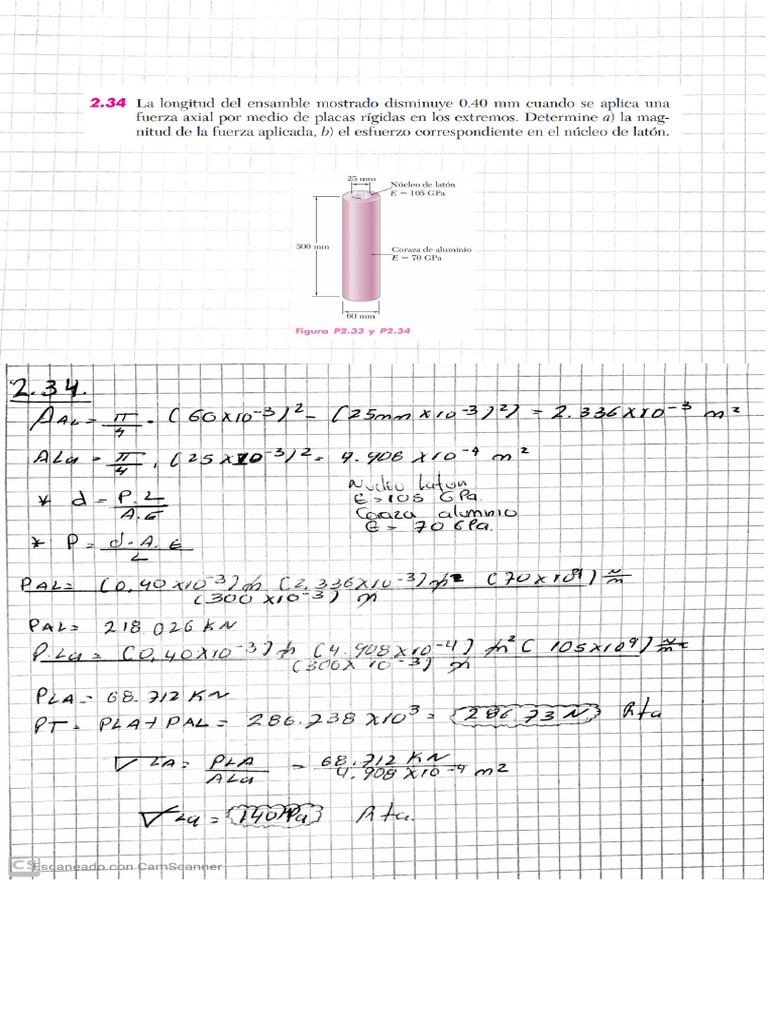 2.34 La longitud del ensamble mostrado disminuye 0.40 mm cuando se aplica una
fuerza axial por medio de placas rígidas en los extremos. Determine a) la mag-
nitud de la fuerza aplicada, b) el esfuerzo correspondiente en el núcleo de latón.
25 mm
Núcleo de latón
E = 105 GPa
300 mm
Coraza de aluminio
E = 70 GPa
60 mm
Figura P2.33 y P2.34
2.34.
AAL = π/4 . (60x10^-3)^2 - (25mm x10^-3)^2) = 2.336x10^-3 m^2
ALa = π/4 . (25x10^-3)^2 = 4.908 x10^-4 m^2
* d = P.L/A.E
Nucleo laton
E = 105 GPa.
Coraza aluminio
E = 70 GPa.
* P = d.A.E/L
PAL = (0,40x10^-3)m (2,336x10^-3)m^2 (70x10^9) N/m / (300x10^-3) m
PAL = 218.026 KN
P.La = (0,40x10^-3)m (4.908x10^-4) m^2 (105x10^9) N/m^2 / (300x10^-3) m
PLA = 68.712 KN
PT = PLA + PAL = 286.738 x10^3 = 286.73 N Rta
σLA = PLA/ALa = 68.712 KN/4.908x10^-4 m^2
σLa = 140 MPa Rta.
CS Escaneado con CamScanner